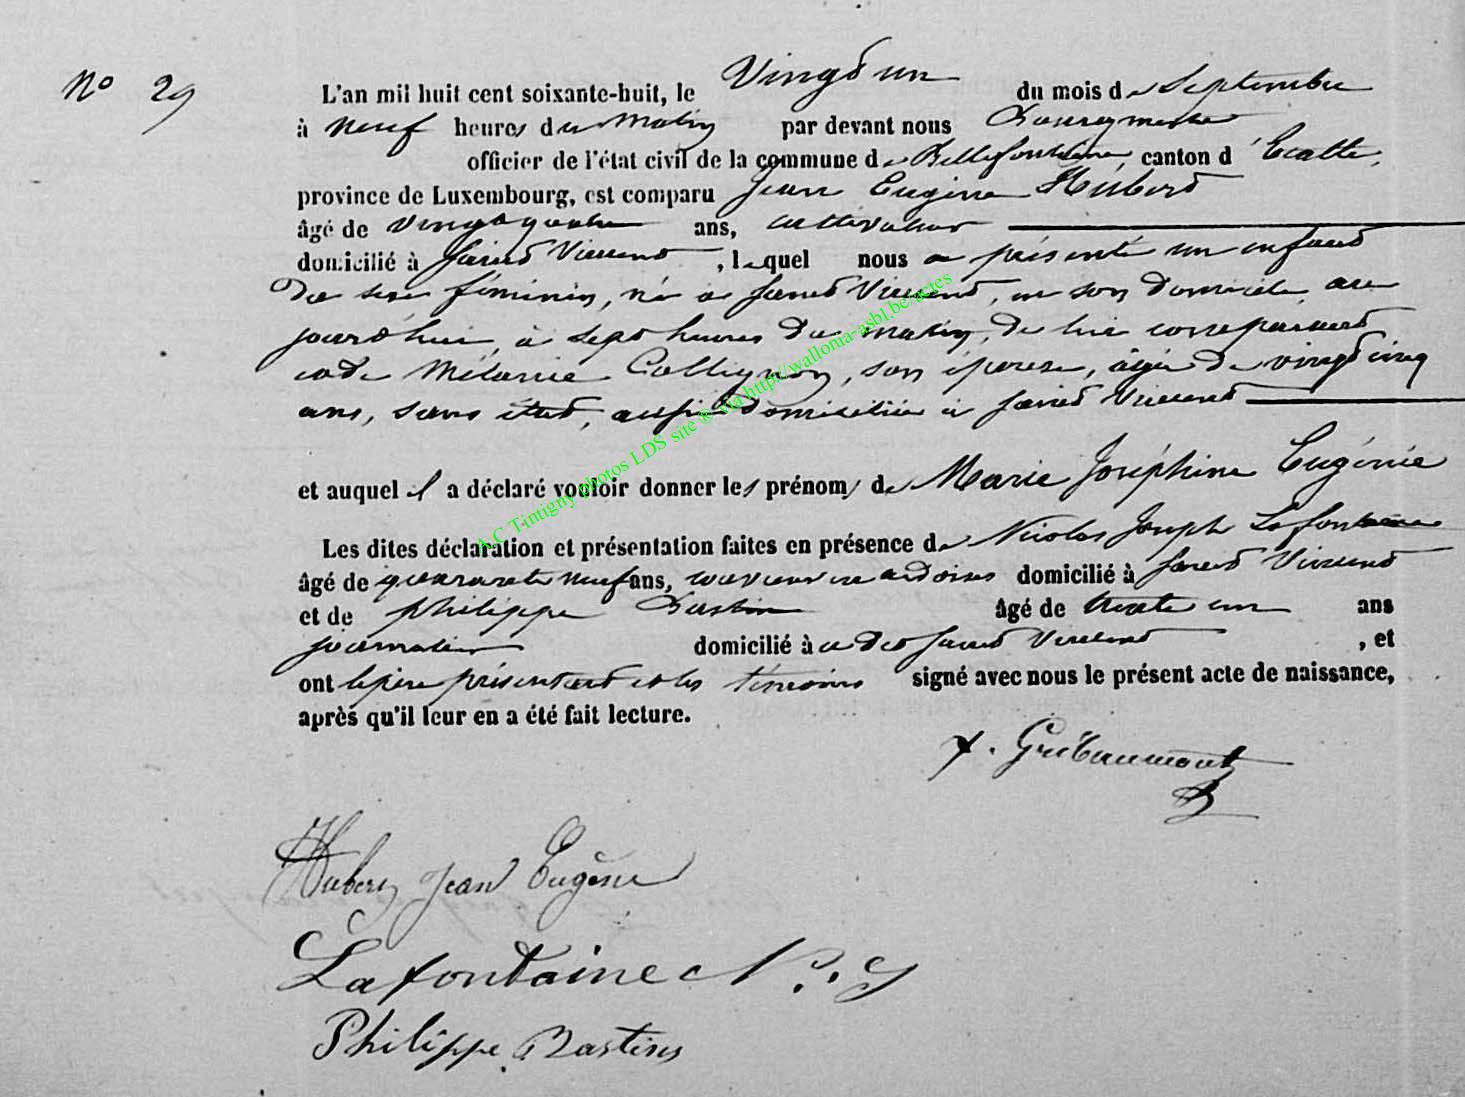 No 29
L'an mil huit cent soixante-huit, le Vingt un du mois de Septembre
à neuf heures du Matin par devant nous Bourgmestre
officier de l'état civil de la commune de Bellefontaine, canton d'Etalle,
province de Luxembourg, est comparu Jean Eugène Hubert
âgé de vingt quatre ans, cultivateur
domicilié à Saint Vincent, lequel nous a présenté un enfant
du sexe féminin, né à Saint Vincent, en son domicile, au
jourd'hui, à sept heures du matin, de lui comparant
et de Mélanie Collignon, son épouse, âgée de vingt cinq
ans, sans état, aussi domiciliée à Saint Vincent
et auquel il a déclaré vouloir donner les prénoms de Marie Joséphine Eugénie
Les dites déclaration et présentation faites en présence de Nicolas Joseph Lafontaine
âgé de quarante neuf ans, ardoises domicilié à Saint Vincent
et de Philippe Bastin âgé de trente un ans
journalier domicilié à Saint Vincent, et
ont le père présentant et les témoins signé avec nous le présent acte de naissance,
après qu'il leur en a été fait lecture.
Gribaumont
Hubert Jean Eugène
Lafontaine N. J
Philippe Bastin
A.C Tintigny photos LDS site ® via http://wallonia-asbl.be/actes